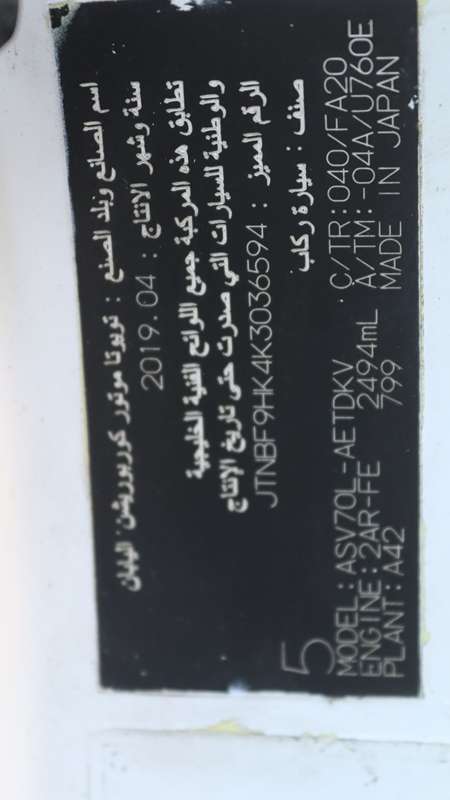 اسم الصانع وبلد الصنع : تويوتا موتور كوربوريشن اليابان
سنة وشهر الانتاج : 2019.04
تطابق هذه المركبة جميع اللوائح الفنية الخليجية
والوطنية للسيارات التي صدرت حتى تاريخ الإنتاج
الرقم المميز : JTNBF9HK4K3036594
صنف : سيارة ركاب
5
MODEL:ASV70L-AETDKV C/TR:040/FA20
ENGINE:2AR-FE 2494mL A/TM:-04A/U760E
PLANT:A42 799 MADE IN JAPAN